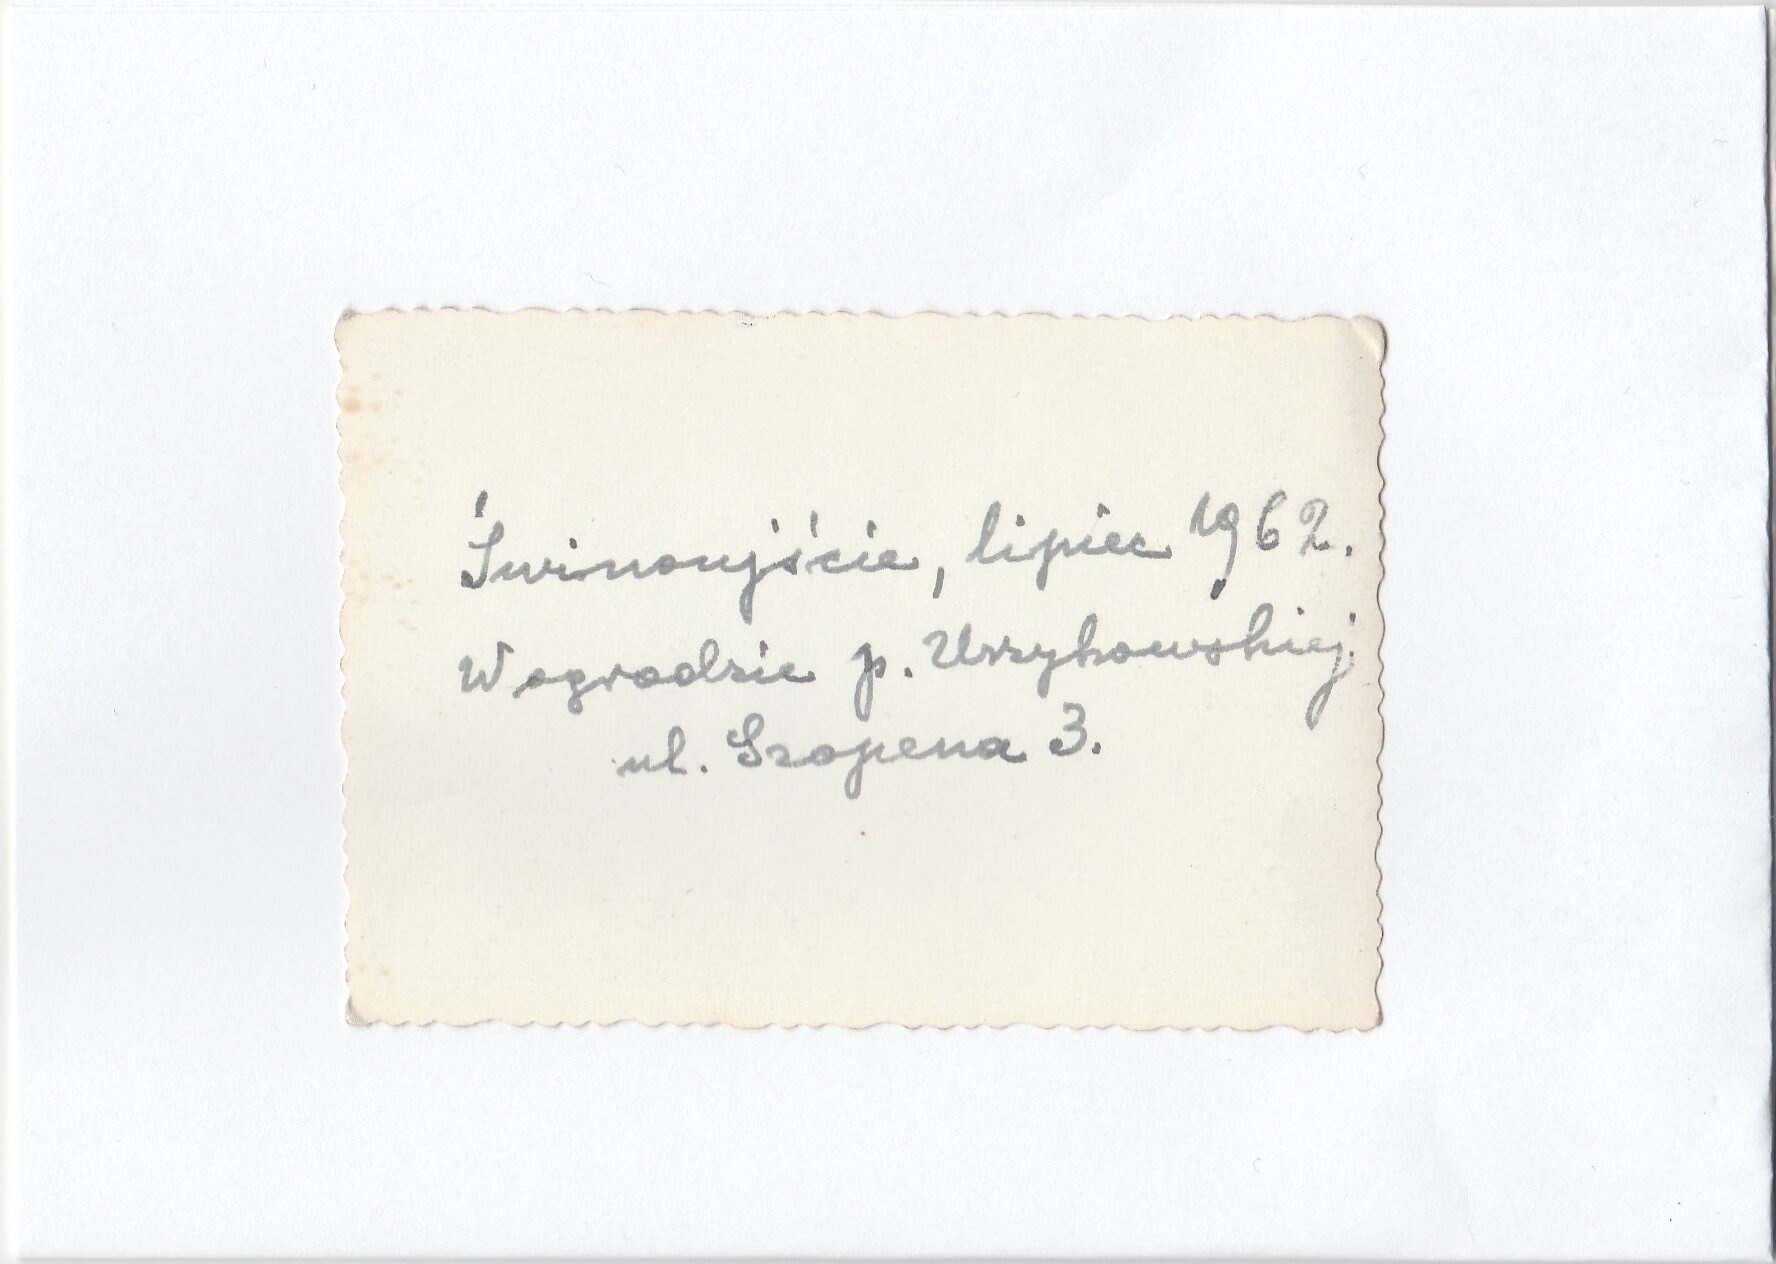 Świnoujście, lipiec 1962.
W ogrodzie p. Urzykowskiej
ul. Szopena 3.